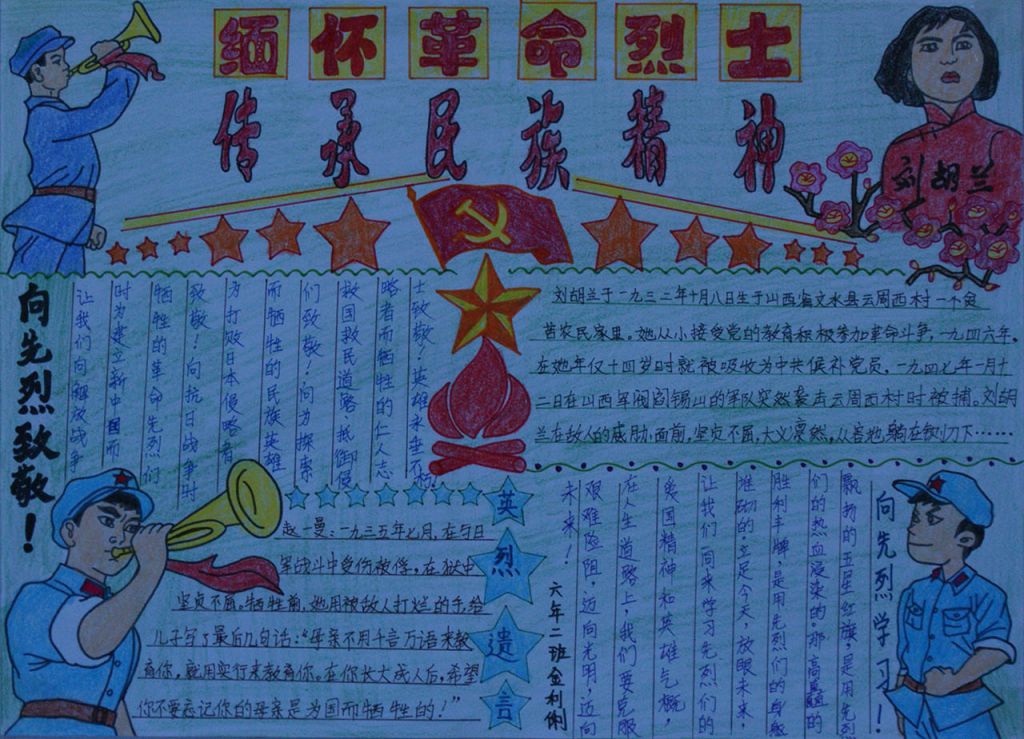 缅怀革命烈士
传承民族精神
刘胡兰
向先烈致敬！
让我们向解放战争
时为建立新中国而
牺牲的革命先烈们
致敬！向抗日战争时
为打败日本侵略者
而牺牲的民族英雄
们致敬！向为探索
救国救民道路、抵御侵
略者而牺牲的仁人志
士致敬！英雄永垂不朽！
刘胡兰于一九三二年十月八日生于山西省文水县云周西村一个贫
苦农民家里。她从小接受党的教育积极参加革命斗争，一九四六年，
在她年仅十四岁时就被吸收为中共候补党员，一九四七年一月十
二日在山西军阀阎锡山的军队突然袭击云周西村时被捕。刘胡
兰在敌人的威胁面前，坚贞不屈，大义凛然，从容地躺在铡刀下……
英烈遗言
赵一曼：一九三五年七月，在与日
军战斗中受伤被俘，在狱中
坚贞不屈。牺牲前，她用被敌人打烂的手给
儿子写了最后几句话：“母亲不用千言万语来教
育你，就用实行来教育你。在你长大成人后，希望
你不要忘记你的母亲是为国而牺牲的！”
向先烈学习！
飘扬的五星红旗，是用先烈
们的热血浸染的。那高矗的
胜利丰碑，是用先烈们的身躯
堆砌的。立足今天，放眼未来，
让我们同来学习先烈们的
爱国精神和英雄气概，
在人生道路上，我们要克服
艰难险阻，迈向光明，迈向
未来！
六年二班金利俐